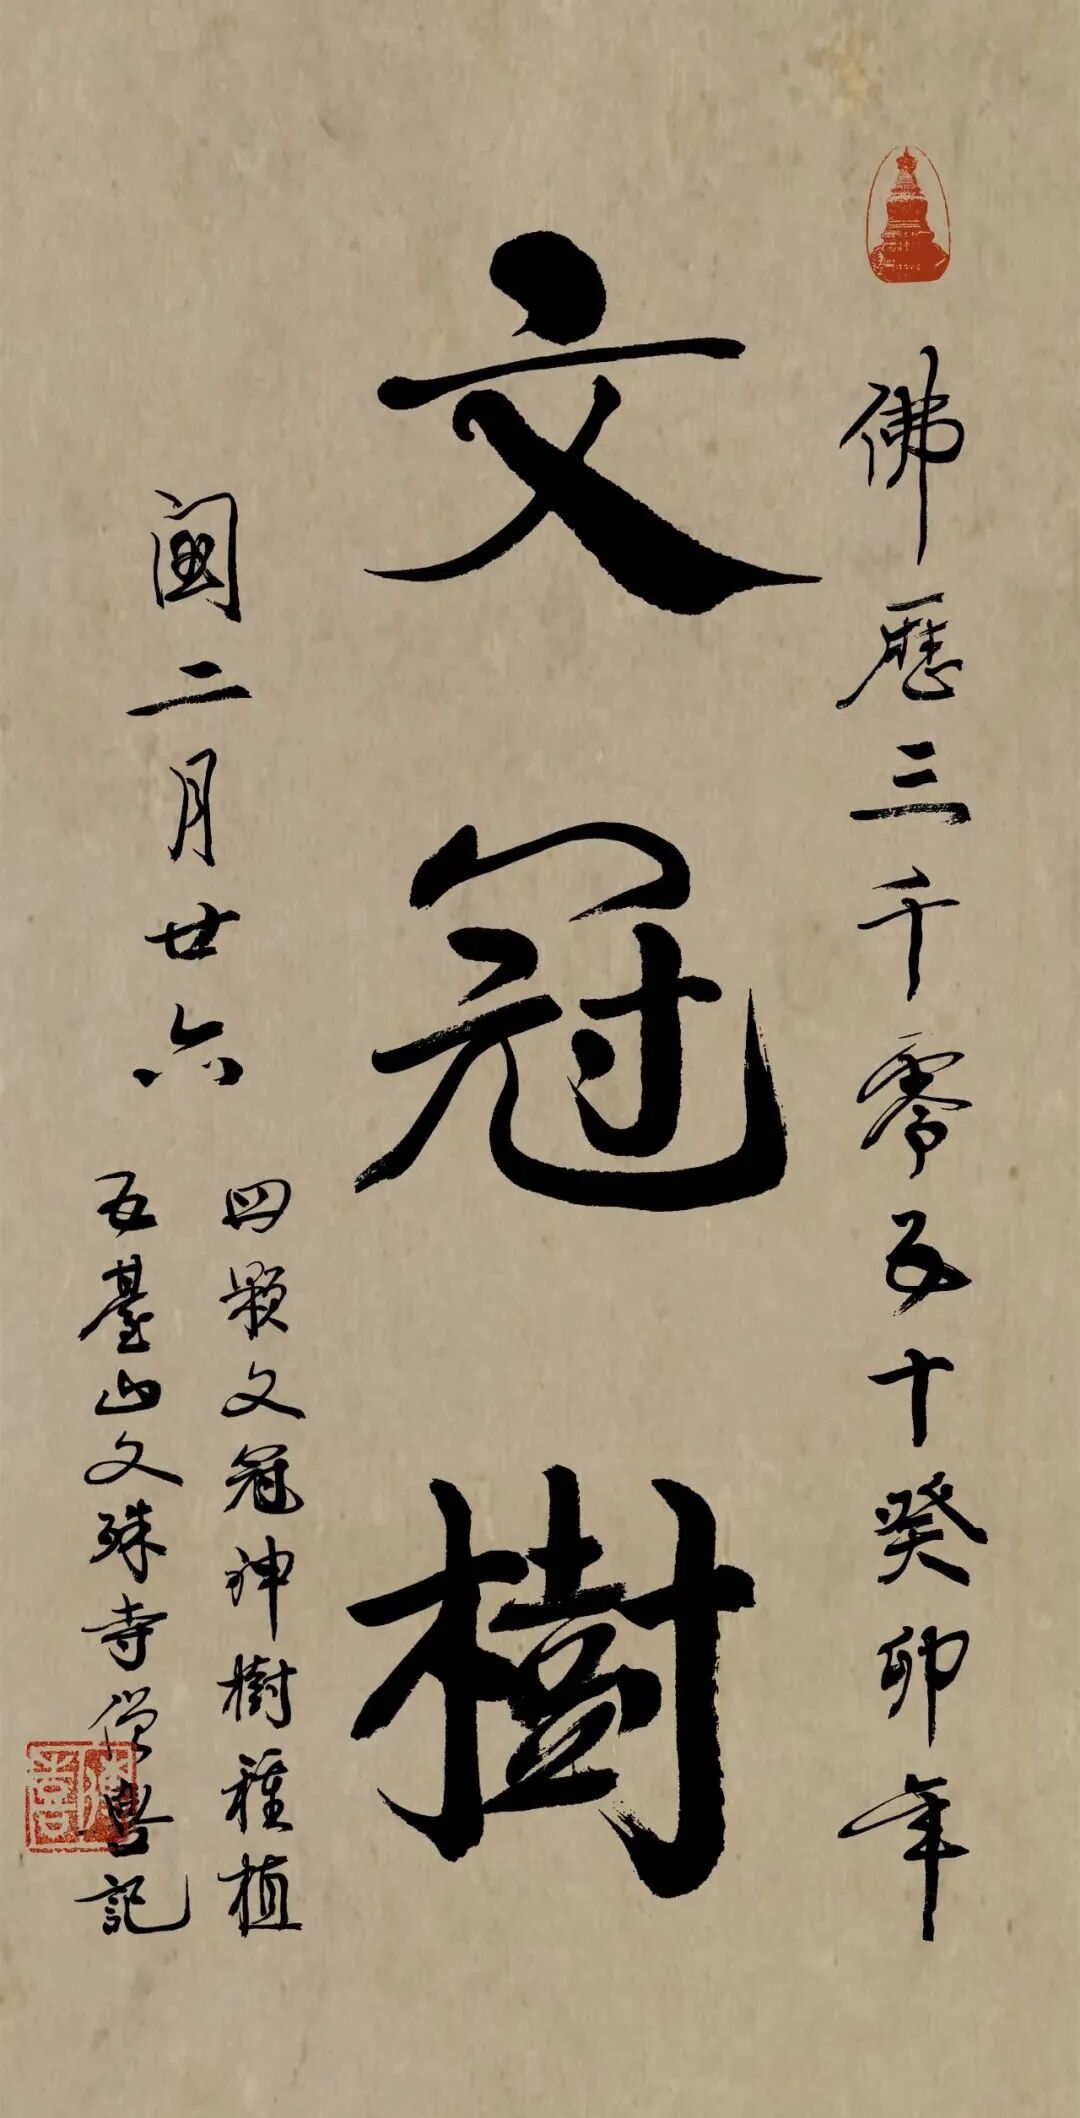 佛歷三千零五十癸卯年
文冠樹
闰二月廿六
四顆文冠神樹種植
五臺山文殊寺僧記